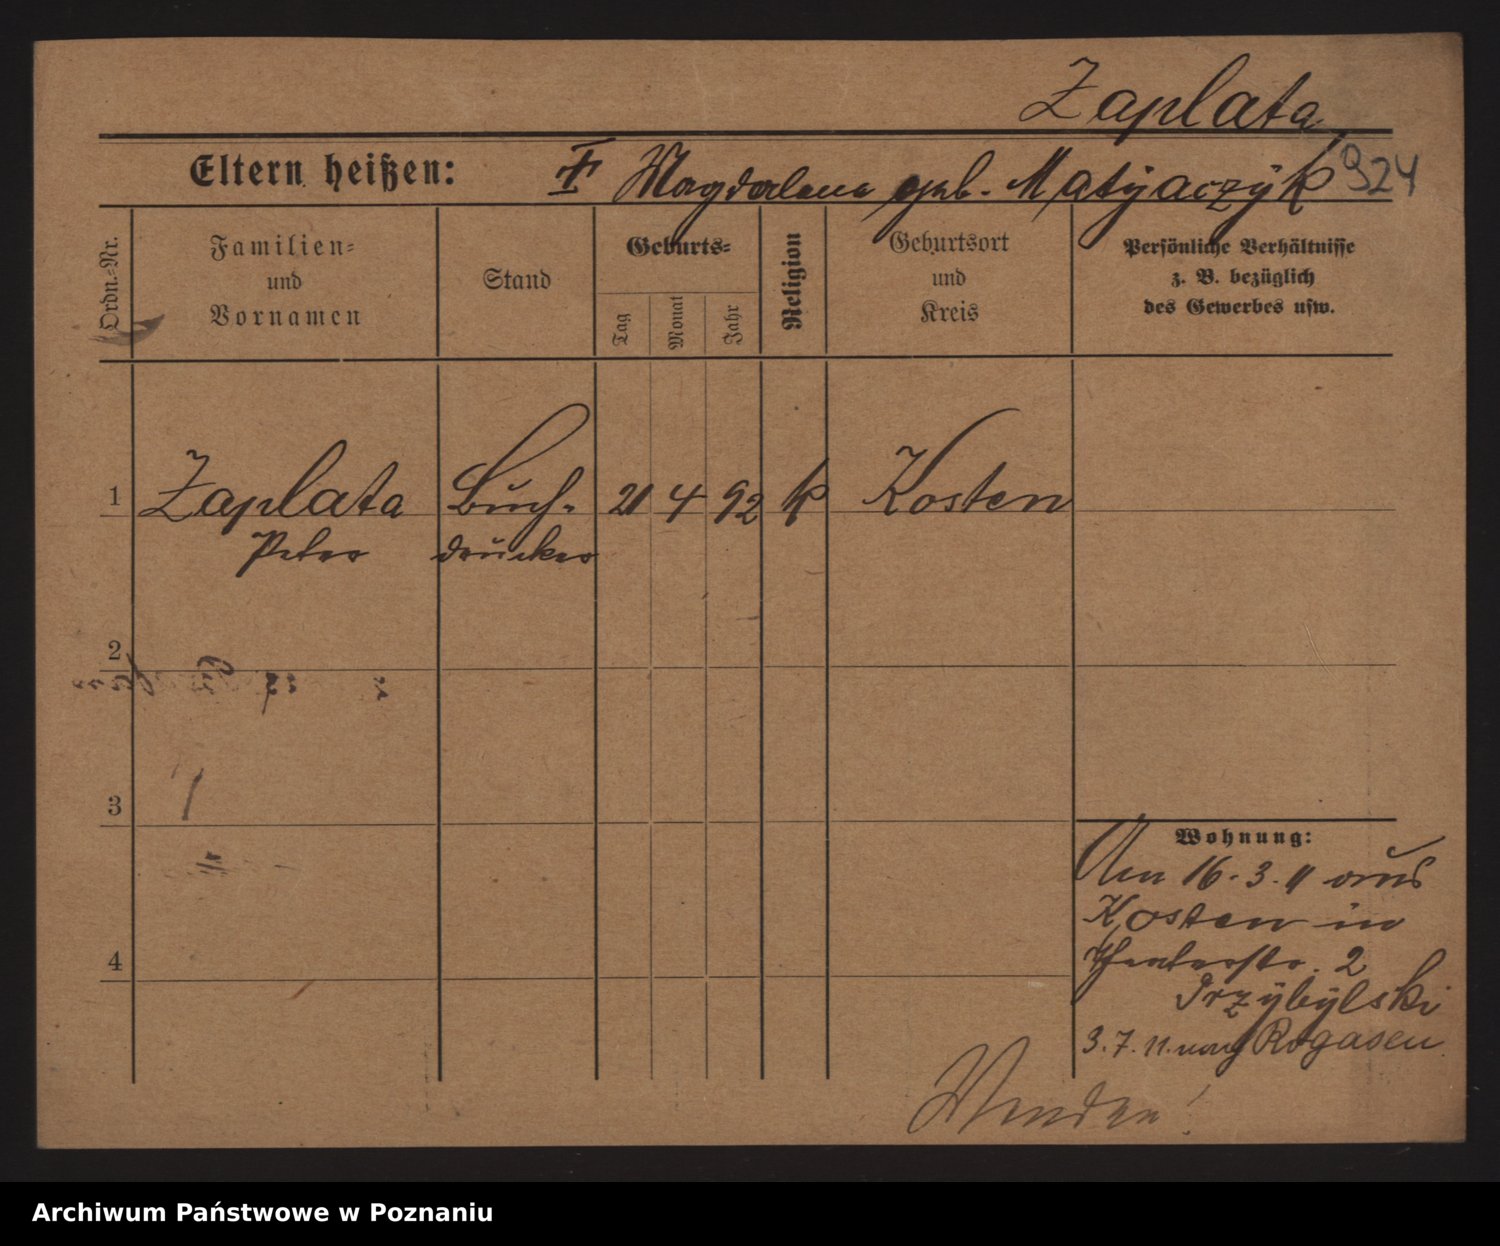 Zaplata
Eltern heißen: Magdalena geb. Matÿaczÿk 324
Ordn.=Nr.
Familien=
und
Vornamen
Stand
Geburts=
Tag
Monat
Jahr
Religion
Geburtsort
und
Kreis
Persönliche Verhältnisse
z. B. bezüglich
des Gewerbes usw.
1 Zaplata Buch- 21 4 92 k Kosten
Peter drucker
2
3
4
Wohnung:
Am 16.3.11 aus
Kosten in
Theaterstr. 2
Przÿbÿlski
3.7.11. nach Rogasen
Wenden!
Archiwum Państwowe w Poznaniu